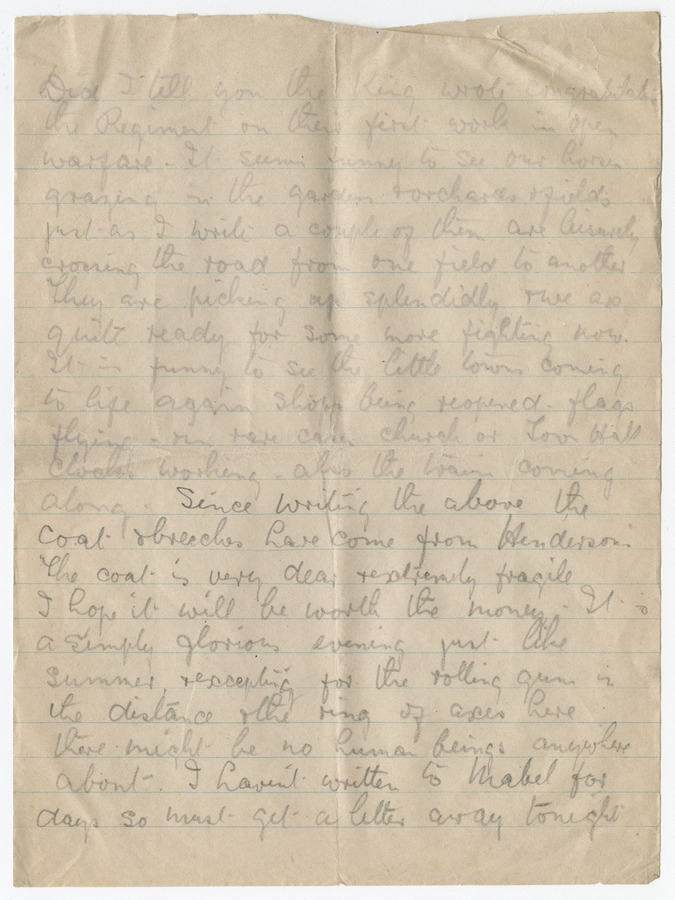 Did I tell you the King wrote congratulati
the Regiment on their first work in open
warfare. It seems funny to see our horses
grazing in the gardens & orchards & fields
just as I write a couple of them are leisurely
crossing the road from one field to another
They are picking up splendidly & we are
quite ready for some more fighting now.
It is funny to see the little towns coming
to life again shops being reopened - flags
flying - & in rare cases church or Town Hall
clocks working - also the trains coming
along. Since writing the above the
coat & breeches have come from Hendersons
The coat is very dear & extremely fragile
I hope it will be worth the money. It is
a simply glorious evening just like
Summer, & excepting for the rolling guns in
the distance & the ring of axes here
there might be no human beings anywhere
about. I havent written to Mabel for
days so must get a letter away tonight